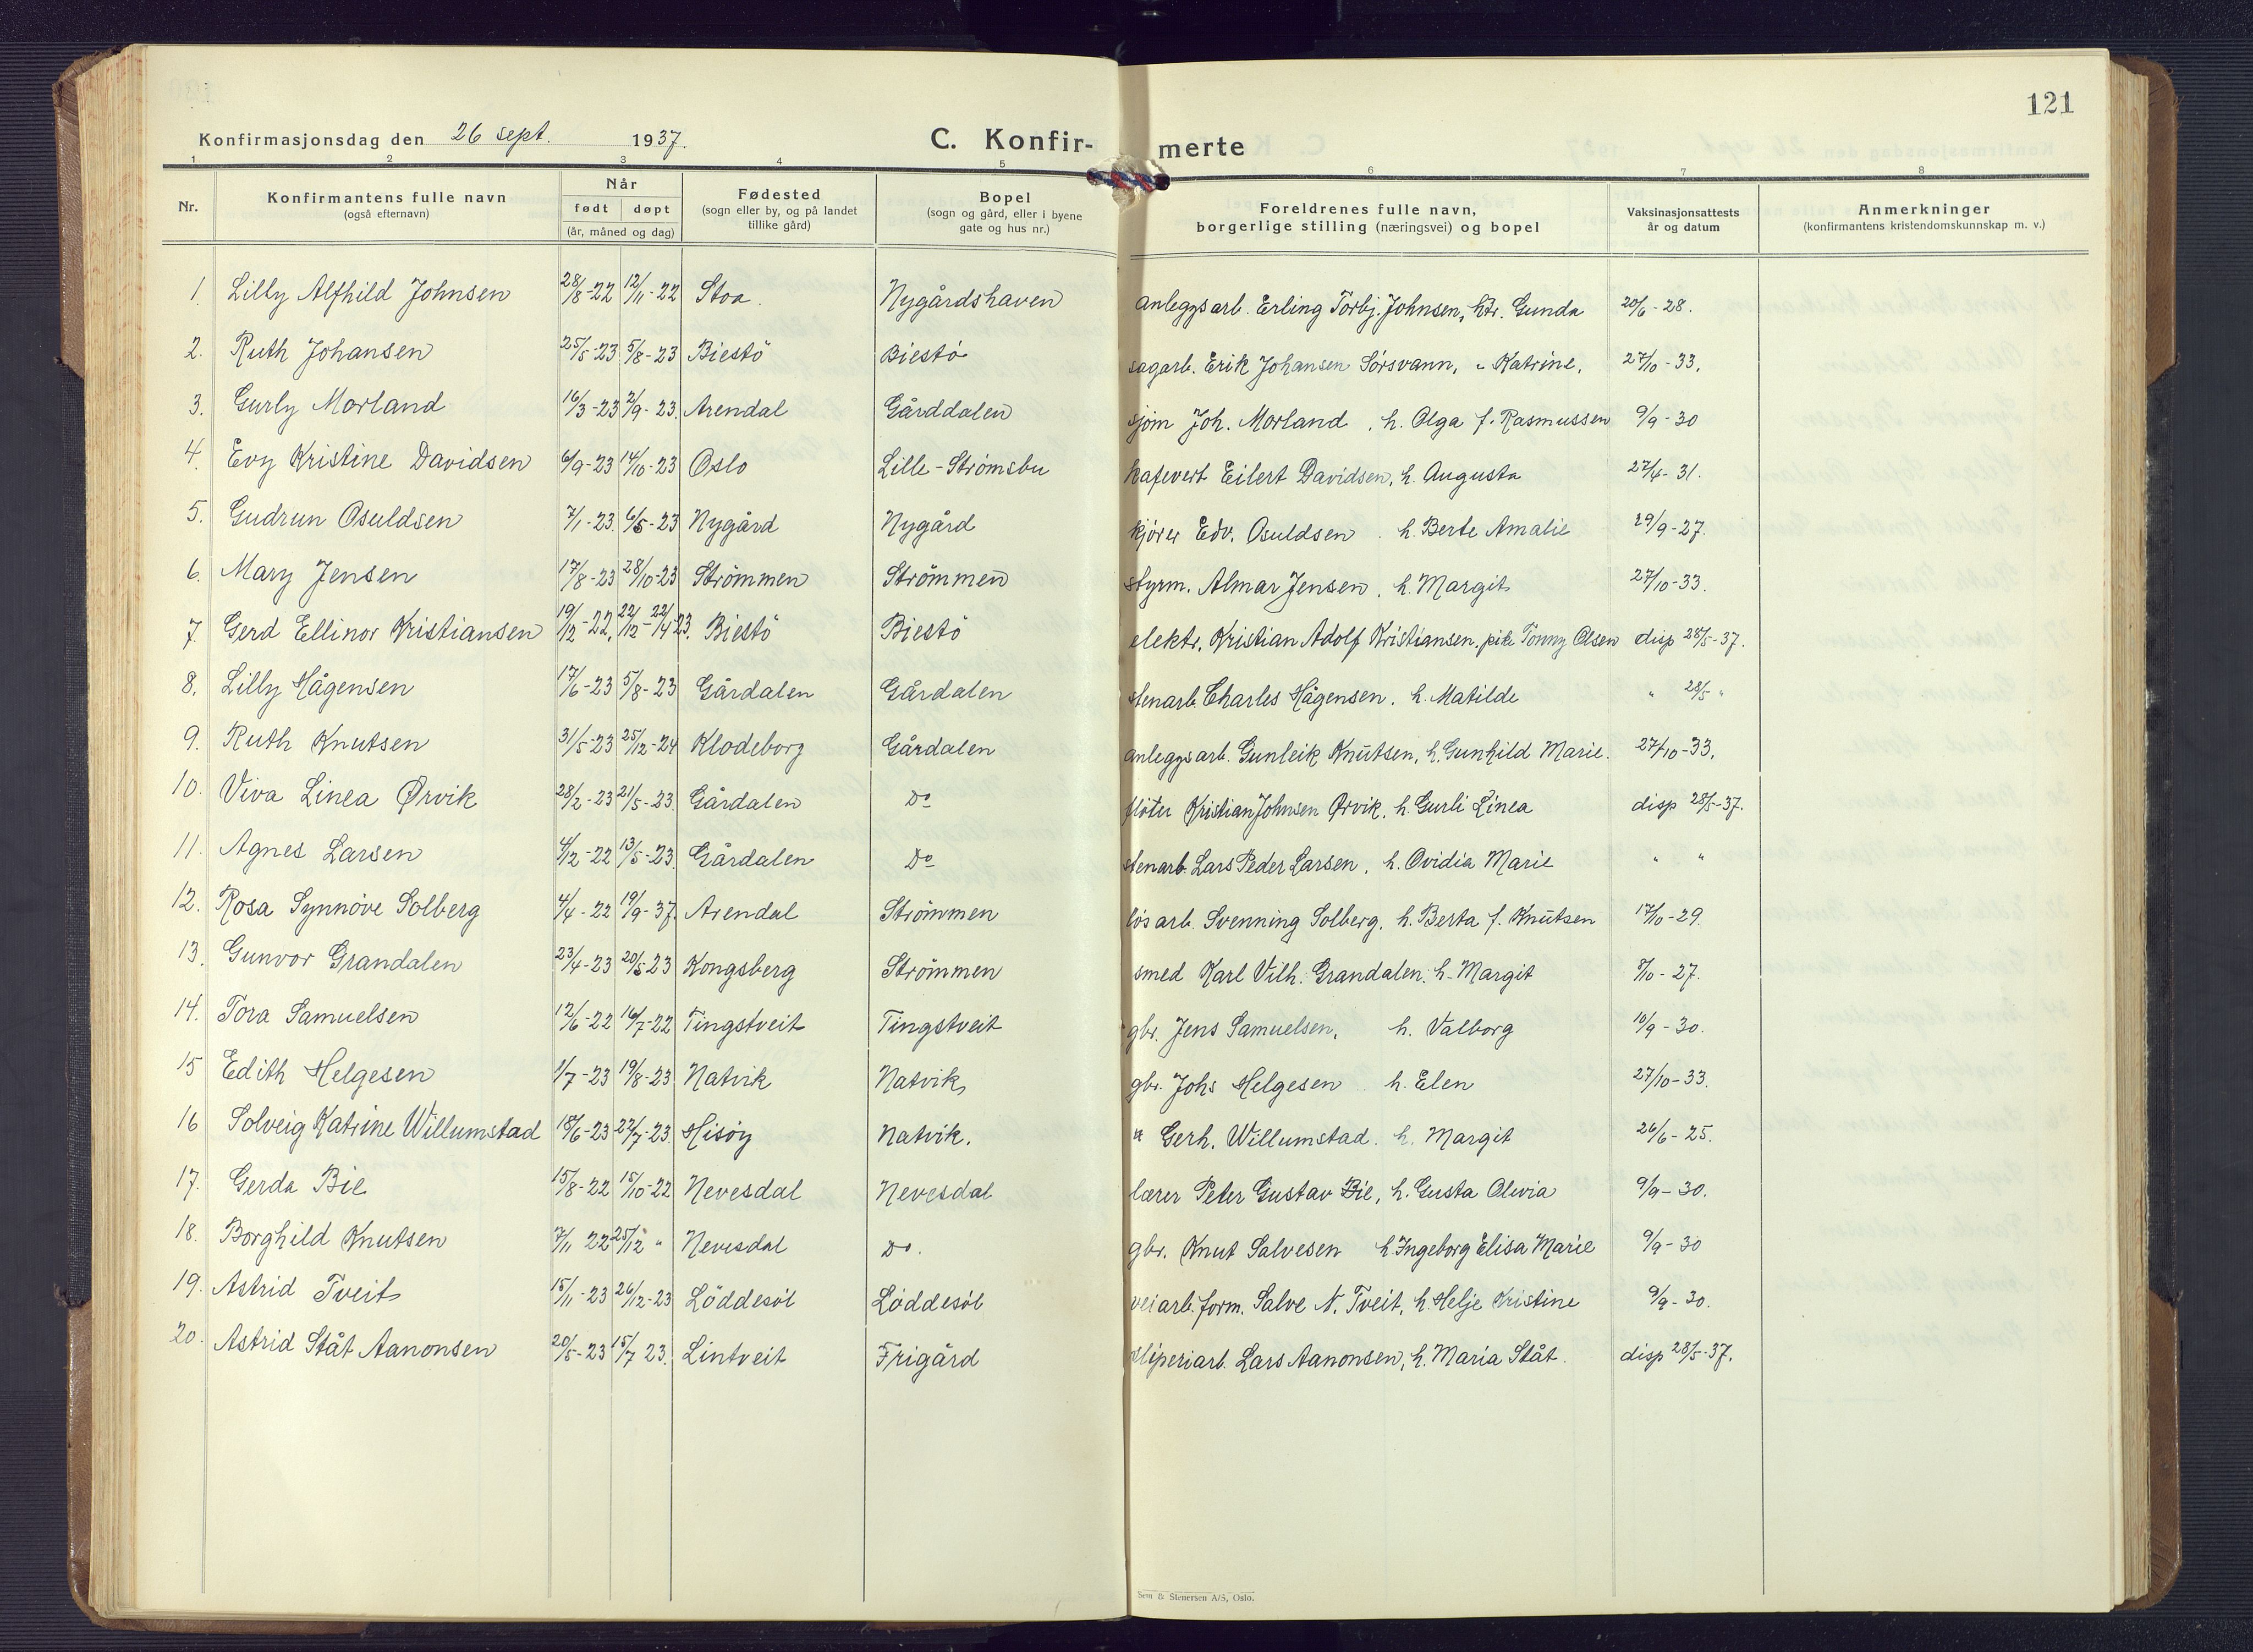 121
Konfirmasjonsdag den 26 sept. 1937. C. Konfirmerte
1 2 3 4 5 6 7 8
Nr. Konfirmantens fulle navn (også efternavn) Når født døpt (år, måned og dag) Fødested (sogn eller by, og på landet tillike gård) Bopel (sogn og gård, eller i byene gate og hus nr.) Foreldrenes fulle navn, borgerlige stilling (næringsvei) og bopel Vaksinasjonsattests år og datum Anmerkninger (konfirmantens kristendomskunnskap m. v.)
1. Lilly Alfhild Johnsen 28/8-22 12/11-22 Stoa. Nygårdshaven anleggsarb. Erling Torbj. Johnsen, htr. Gunda 20/6-28.
2. Ruth Johansen 25/5-23 5/8-23 Biestö Biestö sagarb. Erik Johansen Sörsvann, " Katrine, 27/10-33.
3. Gurly Morland 16/3-23 2/9-23. Arendal Gårddalen sjöm Joh. Morland, h. Olga f. Rasmussen 9/9-30
4. Evy Kristine Davidsen 6/9-23 14/10-23 Oslo Lille-Strömsbu kafevert Eilert Davidsen, h. Augusta 27/4-31.
5. Gudrun Osuldsen 7/1-23. 6/5-23 Nygård Nygård kjörer Edv. Osuldsen. h. Berte Amalie 29/9-27.
6. Mary Jensen 17/8-23 28/10-23 Strömmen Strömmen styrm. Almar Jensen, h. Margit 27/10-33.
7. Gerd Ellinor Kristiansen 19/12-22. 22/12-22/4-23. Biestö Biestö elektr. Kristian Adolf Kristiansen, pike Tonny Olsen disp 28/5-37.
8. Lilly Hågensen 17/6-23 5/8-23 Gårdalen Gårdalen stenarb. Charles Hågensen. h. Matilde " 28/5 "
9. Ruth Knutsen 31/5-23 25/12-24 Klodeborg Gårdalen anleggsarb. Gunleik Knutsen, h. Gunhild Marie. 27/10-33.
10. Viva Linea Ørvik 28/2-23 21/5-23. Gårdalen Do flöter Kristian Johnsen Ørvik, h. Gurli Linea disp 28/5-37.
11. Agnes Larsen 4/12-22 13/5-23. Gårdalen Do stenarb. Lars Peder Larsen, h. Ovidia Marie " "
12. Rosa Synnöve Solberg 4/4-22 19/9-37. Arendal Strömmen lös arb. Svenning Solberg, h. Berta f. Knutsen 17/10-29.
13. Gunvor Grandalen 23/4-23 20/5 23 Kongsberg Strömmen smed Karl Vilh. Grandalen. h. Margit /10-27.
14. Tora Samuelsen 12/6-22 16/7-22 Tingstveit Tingstveit gbr. Jens Samuelsen, h. Valborg 10/9-30.
15 Edith Helgesen 1/7-23 19/8-23 Natvik Natvik gbr. Johs Helgesen h. Elen 27/10-33.
16 Solveig Katrine Willumstad 18/6-23 22/7-23. Hisöy Natvik. " Gerh. Willumstad. h. Margit 26/6-25.
17. Gerda Bie 15/8-22 15/10-22 Nevesdal Nevesdal lærer Peter Gustav Bie, h. Gusta Olivia 9/9-30.
18. Borghild Knutsen 7/11 22 25/12 " Nevesdal Do. gbr. Knut Salvesen h. Ingeborg Elisa Marie 9/9-30
19. Astrid Tveit 15/11-23 26/12-23 Löddesöl Löddesöl veiarb. form. Salve N. Tveit, h. Helje Kristine 9/9-30.
20. Astrid Ståt Aanonsen 20/5-23 15/7 23. Lintveit Frigård sliperiarb. Lars Aanonsen, h. Maria Ståt. disp 28/5-37.
Sem & Stenersen A/S, Oslo.